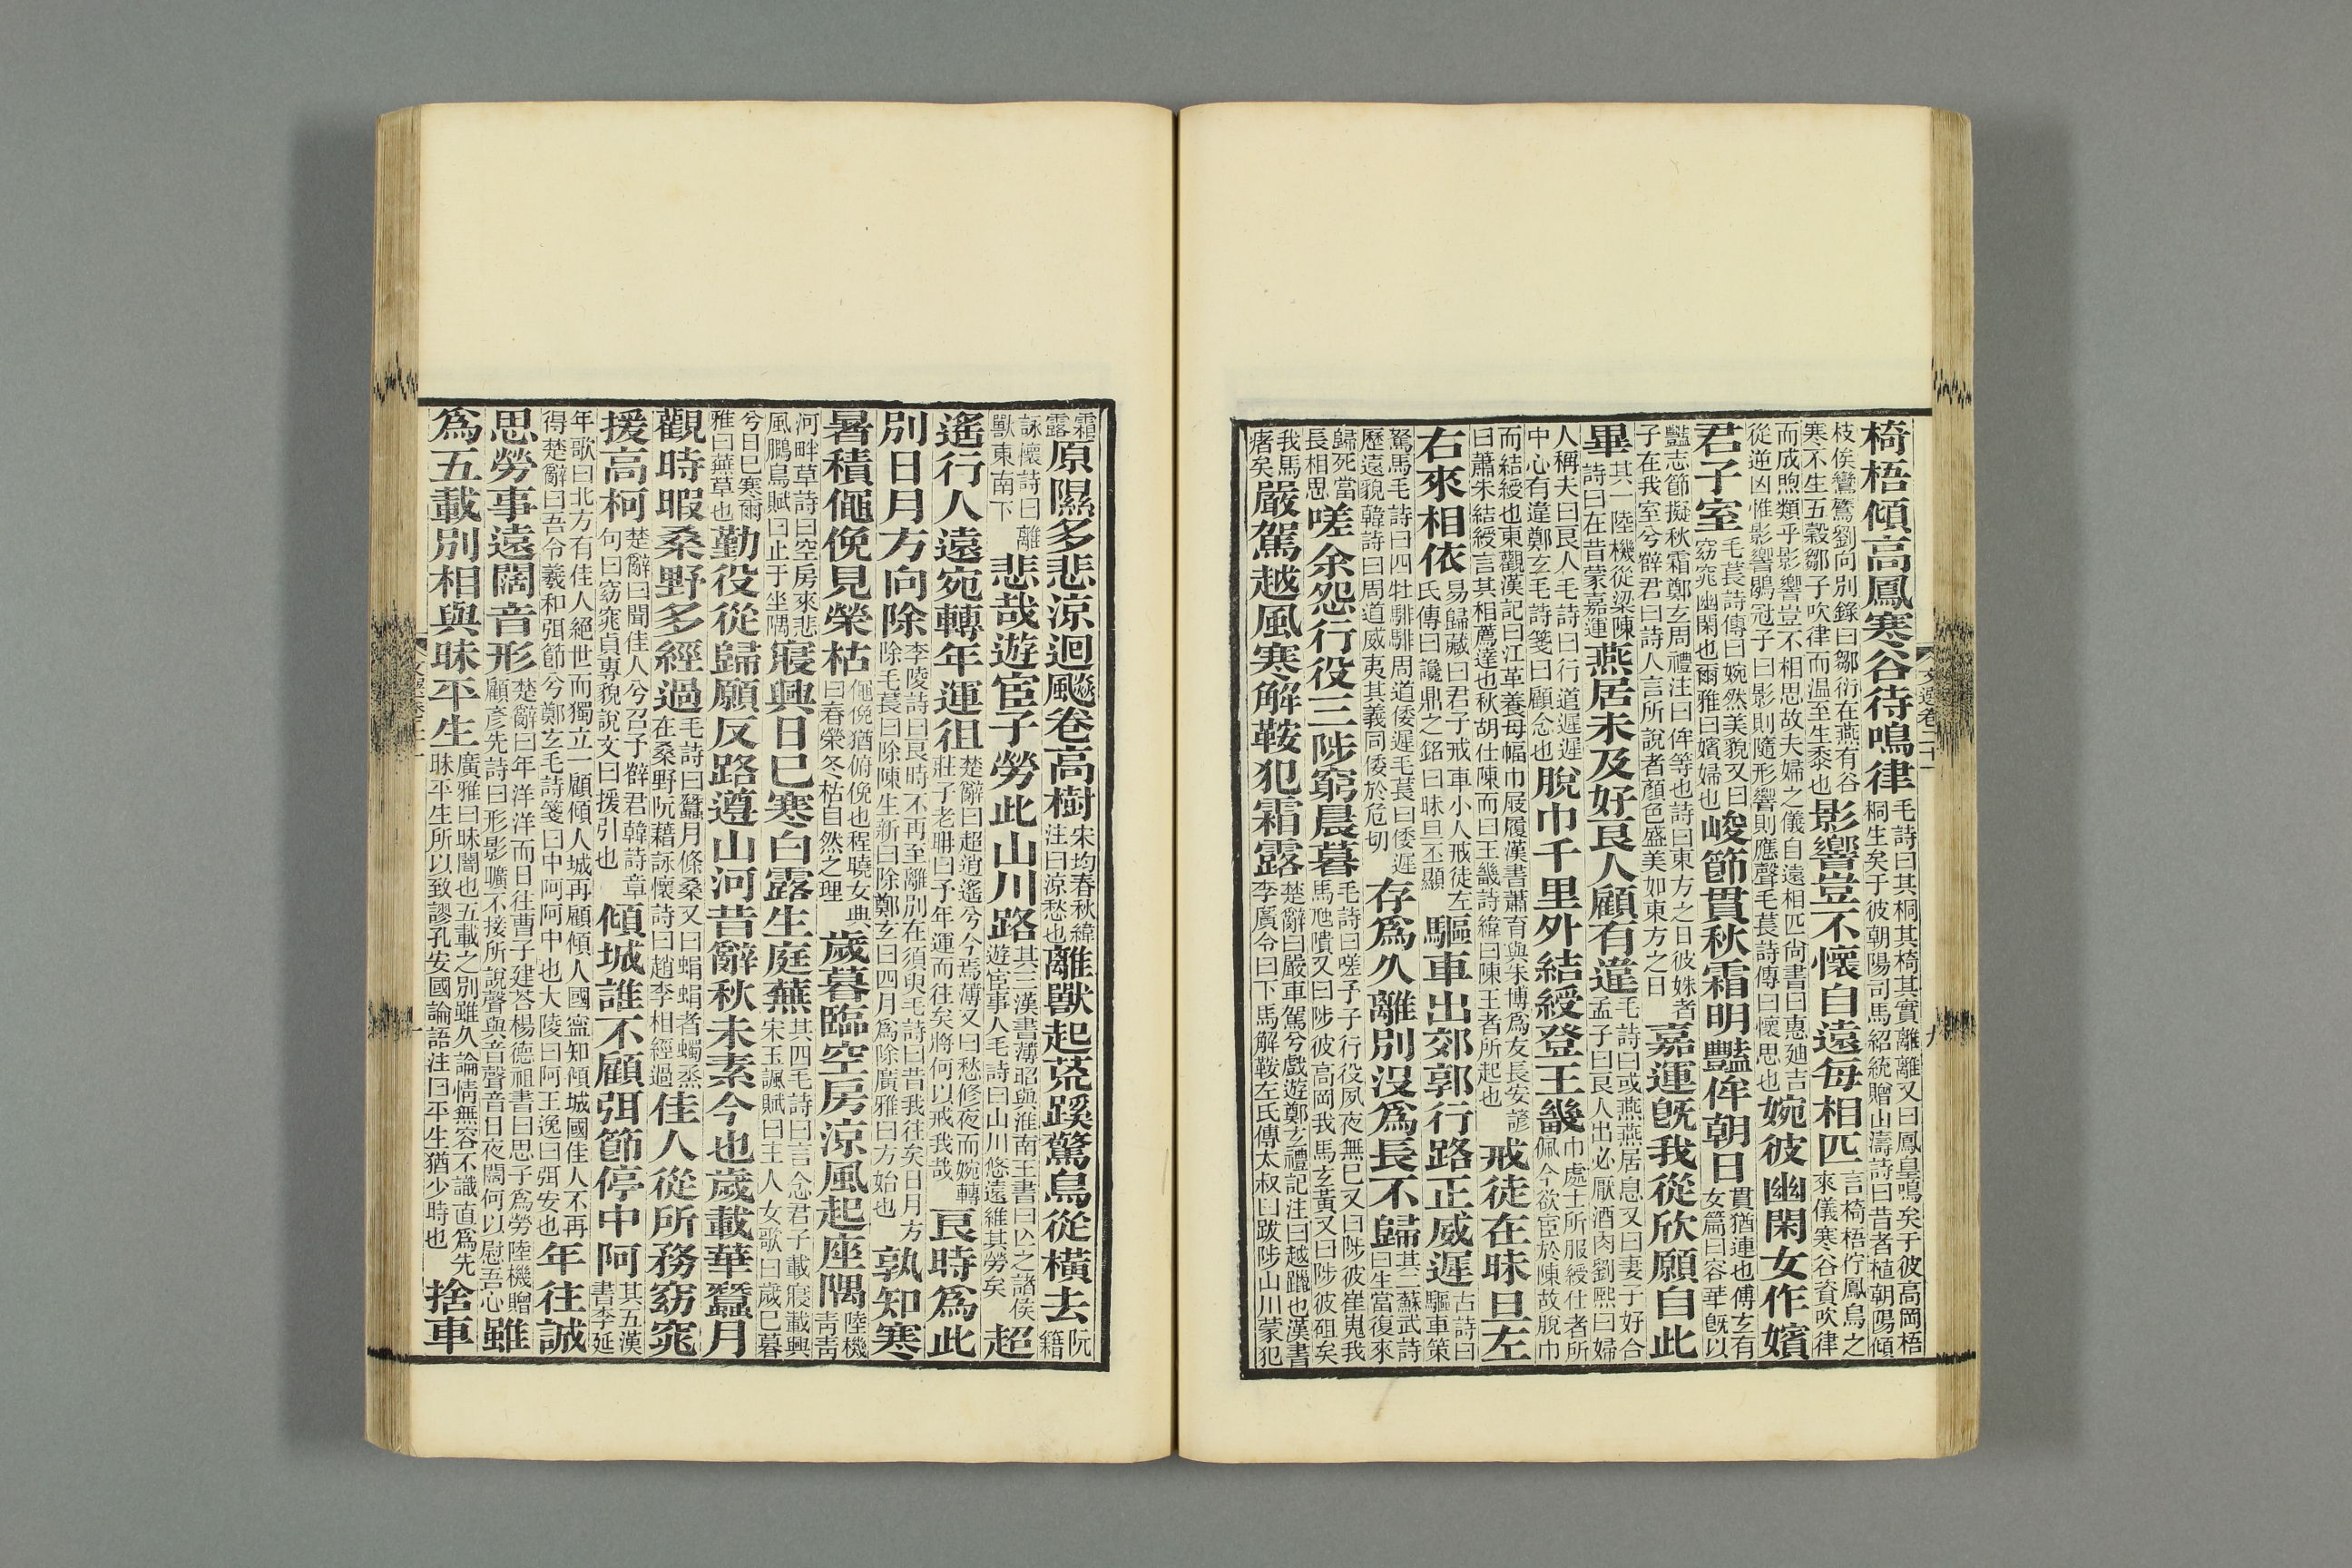 椅梧傾高鳳寒谷待鳴律毛詩曰其桐其椅其實離離又曰鳳皇鳴矣于彼高岡梧桐生矣于彼朝陽司馬紹統贈山濤詩曰昔者植朝陽傾
枝俟鸞鷟劉向別錄曰鄒衍在燕有谷寒不生五穀鄒子吹律而温至生黍也影響豈不懷自遠每相匹言椅梧佇鳳鳥之來儀寒谷資吹律
而成煦類乎影響豈不相思故夫婦之儀自遠相匹尚書曰惠廸吉從逆凶惟影響鶡冠子曰影則隨形響則應聲毛萇詩傳曰懷思也婉彼幽閑女作嬪
君子室毛萇詩傳曰婉然美貌又曰窈窕幽閑也爾雅曰嬪婦也峻節貫秋霜明豔侔朝日貫猶連也傅玄有女篇曰容華旣以
豔志節擬秋霜鄭玄周禮注曰侔等也詩曰東方之日彼姝者子在我室兮辥君曰詩人言所說者顏色盛美如東方之日嘉運旣我從欣願自此
畢其一陸機從梁陳詩曰在昔蒙嘉運燕居未及好良人顧有違毛詩曰或燕燕居息又曰妻子好合孟子曰良人出必厭酒肉劉熙曰婦
人稱夫曰良人毛詩曰行道遲遲中心有違鄭玄毛詩箋曰顧念也脫巾千里外結綬登王畿巾處士所服綬仕者所佩今欲宦於陳故脫巾
而結綬也東觀漢記曰江革養母幅巾屐履漢書蕭育與朱博爲友長安諺曰蕭朱結綬言其相薦達也秋胡仕陳而曰王畿詩緯曰陳王者所起也戒徒在昧旦左
右來相依易歸藏曰君子戒車小人戒徒左氏傳曰讒鼎之銘曰昧旦丕顯驅車出郊郭行路正威遲古詩曰驅車策
駑馬毛詩曰四牡騑騑周道倭遲毛萇曰倭遲歷遠貌韓詩曰周道威夷其義同倭於危切存爲久離別沒爲長不歸其二蘇武詩曰生當復來
歸死當長相思嗟余怨行役三陟窮晨暮毛詩曰嗟予子行役夙夜無已又曰陟彼崔嵬我馬虺隤又曰陟彼高岡我馬玄黃又曰陟彼砠矣
我馬瘏矣嚴駕越風寒解鞍犯霜露楚辭曰嚴車駕兮戲遊鄭玄禮記注曰越躐也漢書李廣令曰下馬解鞍左氏傳太叔曰跋陟山川蒙犯
霜露原隰多悲涼迴飈卷高樹宋均春秋緯注曰涼愁也離獸起荒蹊驚鳥從橫去阮籍
詠懷詩曰離獸東南下悲哉遊宦子勞此山川路其三漢書薄昭與淮南王書曰亾之諸侯遊宦事人毛詩曰山川悠遠維其勞矣超
遙行人遠宛轉年運徂楚辭曰超逍遙兮今焉薄又曰愁修夜而婉轉莊子老聃曰予年運而往矣將何以戒我哉良時爲此
別日月方向除李陵詩曰良時不再至離別在須臾毛詩曰昔我往矣日月方除毛萇曰除陳生新曰除鄭玄曰四月爲除廣雅曰方始也孰知寒
暑積僶俛見榮枯僶俛猶俯俛也程曉女典曰春榮冬枯自然之理歲暮臨空房涼風起座隅陸機青青
河畔草詩曰空房來悲風鵩鳥賦曰止于坐隅寢興日已寒白露生庭蕪其四毛詩曰言念君子載寢載興宋玉諷賦曰主人女歌曰歲已暮
兮日已寒爾雅曰蕪草也勤役從歸願反路遵山河昔辭秋未素今也歲載華蠶月
觀時暇桑野多經過毛詩曰蠶月條桑又曰蜎蜎者蠋烝在桑野阮藉詠懷詩曰趙李相經過佳人從所務窈窕
援高柯楚辭曰聞佳人兮召予辥君韓詩章句曰窈窕貞專貌說文曰援引也傾城誰不顧弭節停中阿其五漢書李延
年歌曰北方有佳人絕世而獨立一顧傾人城再顧傾人國寍知傾城國佳人不再得楚辭曰吾令羲和弭節兮鄭玄毛詩箋曰中阿阿中也大陵曰阿王逸曰弭安也年往誠
思勞事遠闊音形楚辭曰年洋洋而日往曹子建荅楊德祖書曰思子爲勞陸機贈顧彥先詩曰形影曠不接所說聲與音聲音日夜闊何以慰吾心雖
爲五載別相與昧平生廣雅曰昧闇也五載之別雖久論情無容不識直爲先昧平生所以致謬孔安國論語注曰平生猶少時也捨車